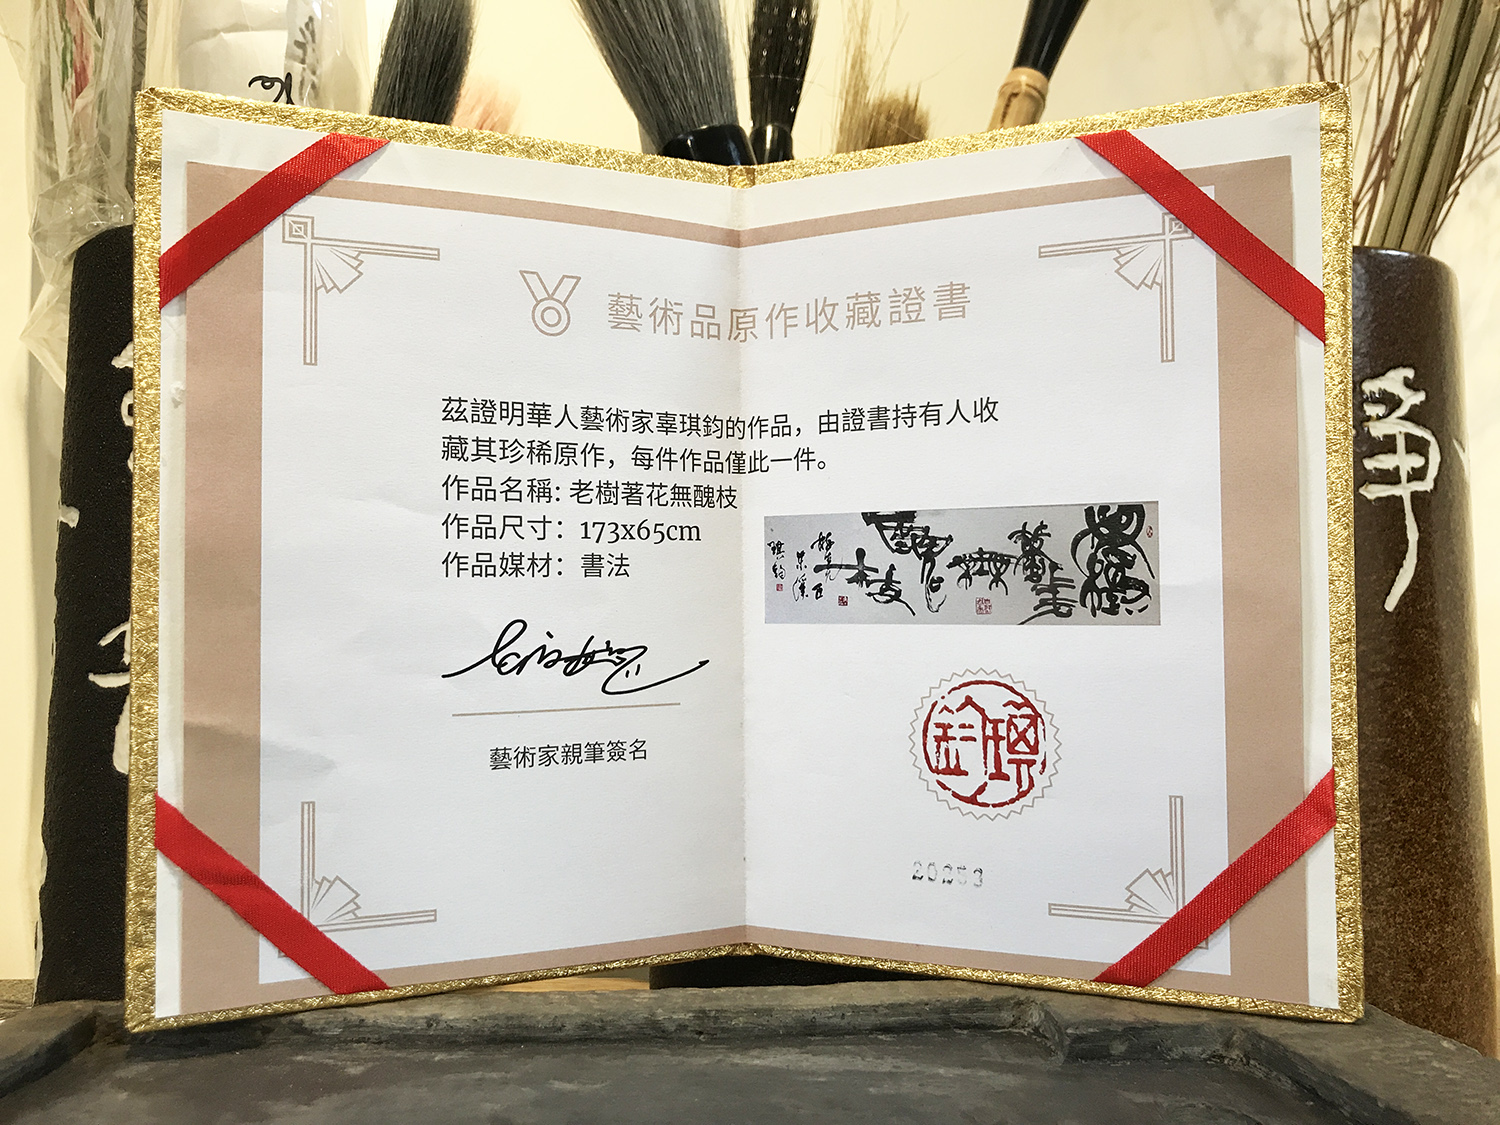 藝術品原作收藏證書
茲證明華人藝術家辜琪鈞的作品，由證書持有人收
藏其珍稀原作，每件作品僅此一件。
作品名稱: 老樹著花無醜枝
作品尺寸：173x65cm
作品媒材：書法
藝術家親筆簽名
老樹著花無醜枝
琪鈞
20253
靜